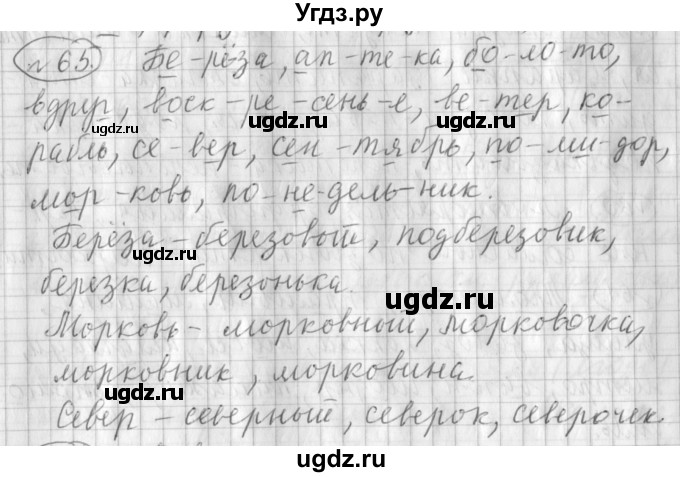 Угдз.ру
№65. Бе-рёза, ап-те-ка, бо-ло-то,
вдруг, воск-ре-сень-е, ве-тер, ко-
рабль, се-вер, сен-тябрь, по-ми-дор,
мор-ковь, по-не-дель-ник.
Берёза - березовый, подберезовик,
березка, березонька.
Морковь - морковный, морковочка,
морковник, морковина.
Север - северный, северок, северочек
ugdz.ru
ugdz.ru
ugdz.ru
ugdz.ru
ugdz.ru
ugdz.ru
ugdz.ru